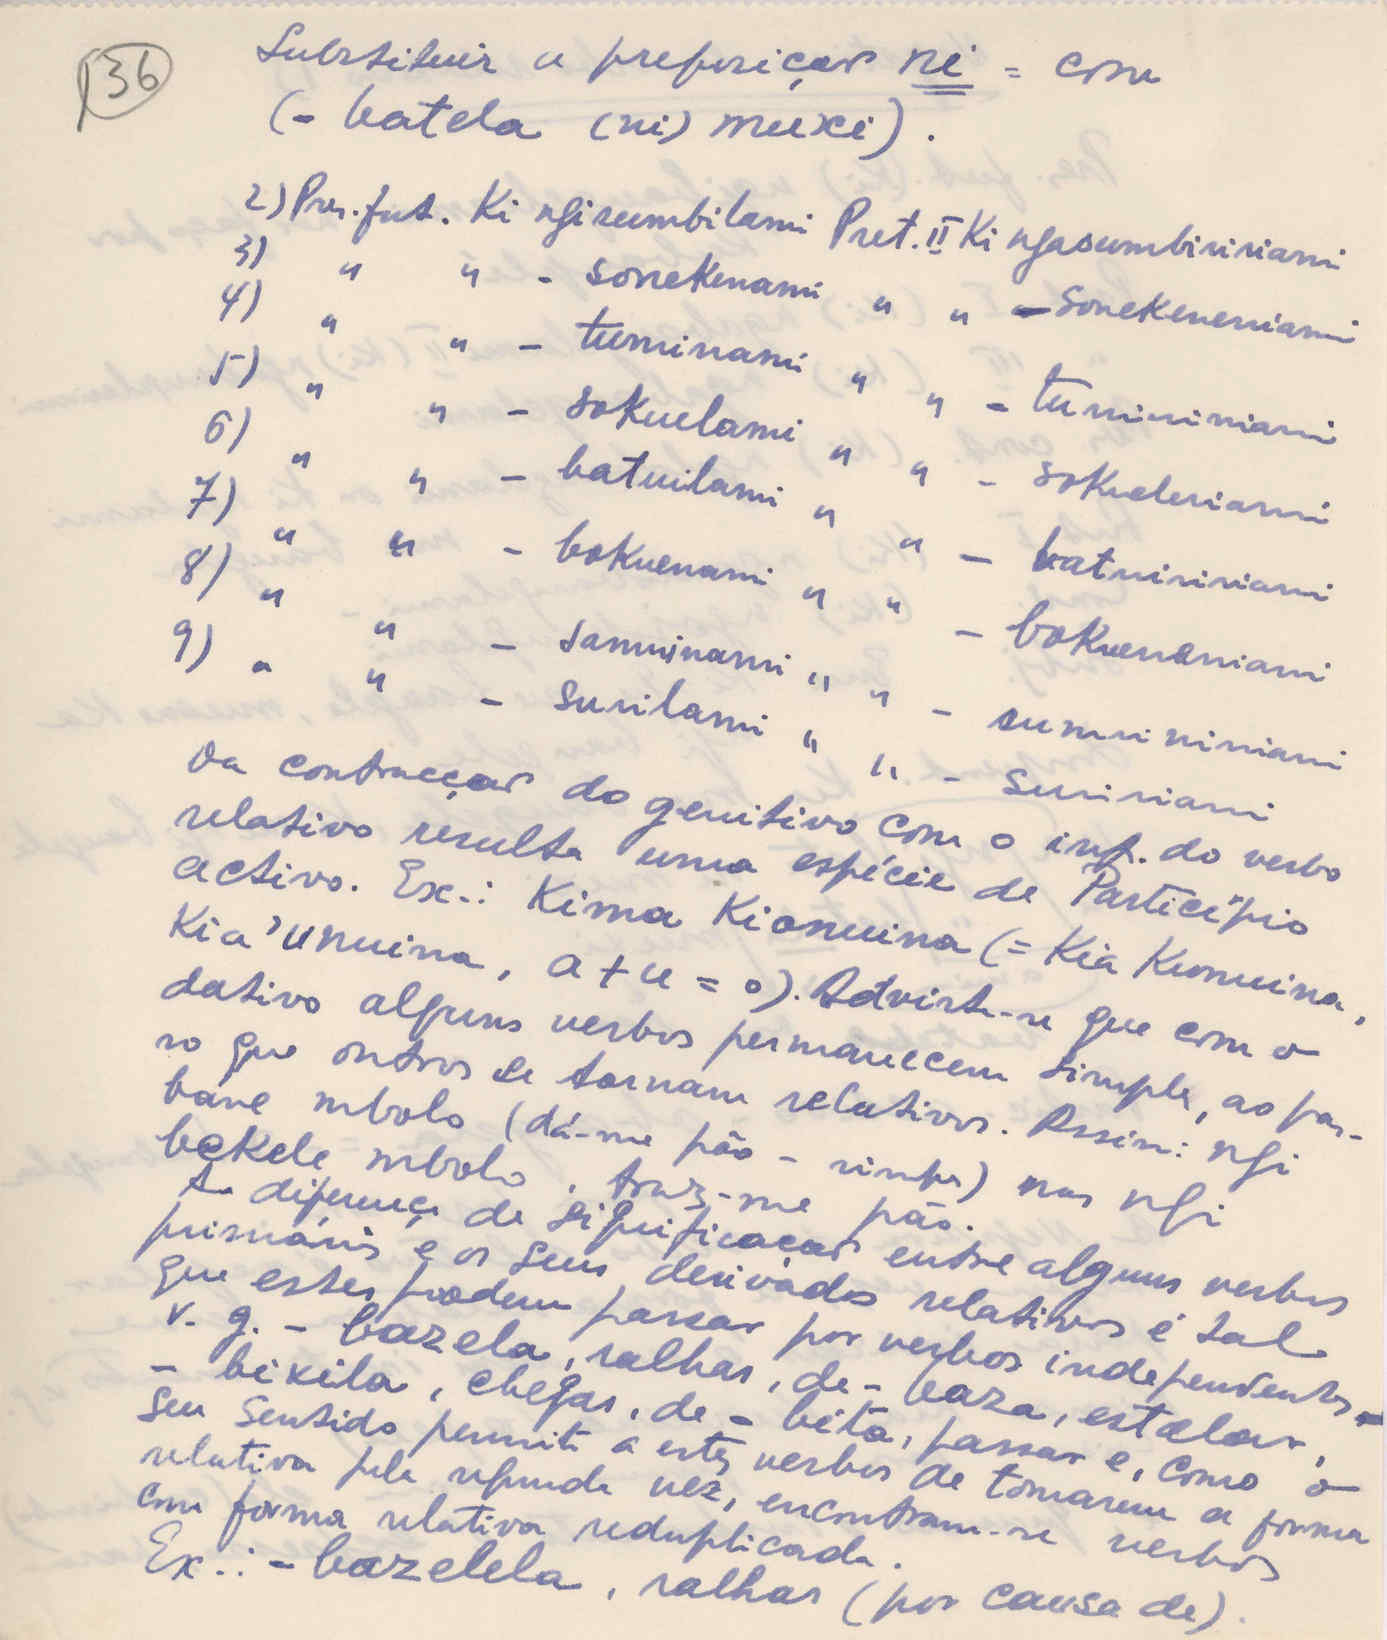 136
Substituir a preposição ni = com
(- batela (ni) muxi).
2) Pres. fut. Ki ngisumbilami Pret. II Ki ngasumbiririami
3) " " - sonekenami " " - sonekeneniami
4) " " - tuminami " " - tumininiami
5) " " - sokuelami " " - sokueleriami
6) " " - batuilami " " - batuiririami
7) " " - bokuenami " " - bokueneniami
8) " " - samuinami " " - sumuininiami
9) " " - surilami " " - suririami
Da contracção do genitivo com o inf. do verbo
relativo resulta uma espécie de Particípio
activo. Ex.: Kima Kionuina (= Kia Kunuina,
Kia 'unuina, a + u = o). Advirta-se que com o
dativo alguns verbos permanecem simples, ao pas-
so que outros se tornam relativos. Assim: ngi
bane mbolo (dá-me pão - simples) mas ngi
bekele mbolo, traz-me pão.
A diferença de significação entre alguns verbos
primários e os seus derivados relativos é tal
que estes podem passar por verbos independentes,
v. g. - bazela, ralhar, de - baza, estalar,
- bixila, chegar, de - bita, passar e, como o
seu sentido permite a estes verbos de tomarem a forma
relativa pela segunda vez, encontram-se verbos
com forma relativa reduplicada.
Ex.: - bazelela, ralhar (por causa de).